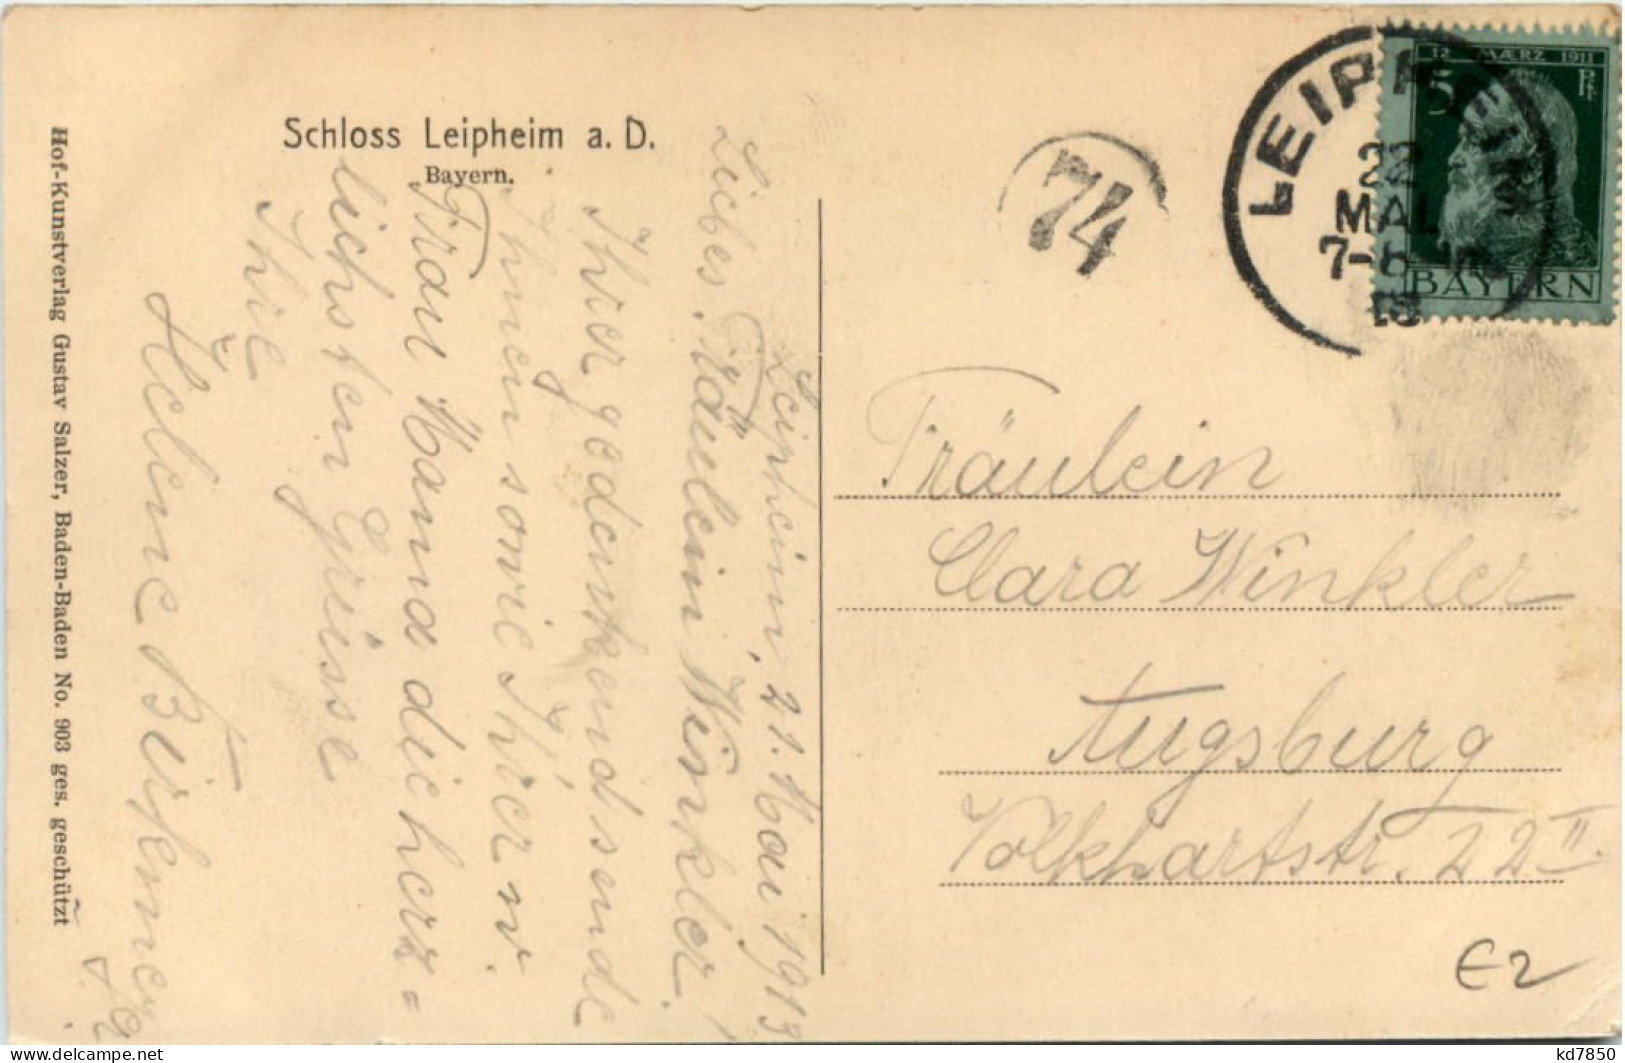 Schloss Leipheim a. D.
Bayern.
Hof-Kunstverlag Gustav Salzer, Baden-Baden No. 903 ges. geschützt
Leipheim, 21. Mai 1913
Liebes Fräulein Winkler!
Ihrer gedenkend sende
Ihnen sowie Ihrer w.
Frau Mama die herz=
lichsten Grüsse
Ihre
Helene Birkmeyer
74
LEIPHEIM
22
MAI
7-8
13
12 MÆRZ 1911
5 Pf
BAYERN
Fräulein
Clara Winkler
Augsburg
Volkhartstr. 22 II.
€2
kd7850